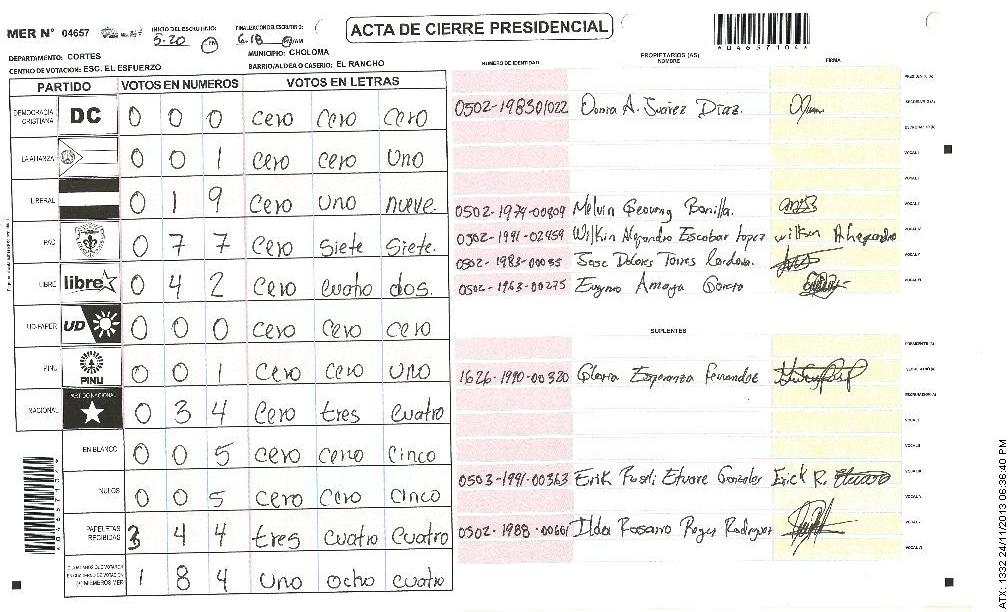 MER N° 04657 INICIO DEL ESCRUTINIO: 5.20 PM FINALIZACION DEL ESCRUTINIO: 6.18 PM/AM ACTA DE CIERRE PRESIDENCIAL *04657104*
DEPARTAMENTO: CORTES MUNICIPIO: CHOLOMA
CENTRO DE VOTACION: ESC. EL ESFUERZO BARRIO/ALDEA O CASERIO: EL RANCHO
PARTIDO VOTOS EN NUMEROS VOTOS EN LETRAS
DEMOCRACIA CRISTIANA DC 0 0 0 cero cero cero
LA ALIANZA 0 0 1 cero cero uno
LIBERAL 0 1 9 cero uno nueve.
PAC 0 7 7 cero siete siete.
LIBRE libre 0 4 2 cero cuatro dos.
UD-FAPER UD 0 0 0 cero cero cero
PINU PINU 0 0 1 cero cero uno
NACIONAL PARTIDO NACIONAL 0 3 4 cero tres cuatro
EN BLANCO 0 0 5 cero cero cinco
NULOS 0 0 5 cero cero cinco
PAPELETAS RECIBIDAS 3 4 4 tres cuatro cuatro
CIUDADANOS QUE VOTARON EN CUADERNO DE VOTACION (+) MIEMBROS MER 1 8 4 uno ocho cuatro
NUMERO DE IDENTIDAD PROPIETARIOS (AS) NOMBRE FIRMA
PRESIDENTE (A)
0502-198301022 A. Suarez Diaz. SECRETARIO (A)
ESCRUTADOR (A)
VOCAL I
VOCAL II
0502-1974-00809 Melvin Geovany Bonilla. VOCAL III
0502-1991-02459 Wilkin Alejandro Escobar Lopez wilkin Alejandro VOCAL IV
0502-1983-00035 Jose Dolores Torres Cardova. VOCAL V
0502-1963-00275 Eugenio Amaya Garcia VOCAL VI
SUPLENTES
PRESIDENTE (A)
1626-1990-00320 Gloria Esperanza Fernandez SECRETARIO (A)
ESCRUTADOR (A)
VOCAL I
VOCAL II
0503-1991-00363 Erik Gonzales Erick R. VOCAL III
VOCAL IV
0502-1988-00601 Ilda Rosario Reyes Rodriguez VOCAL V
VOCAL VI
ATX: 1332 24/11/2013 06:36:40 PM